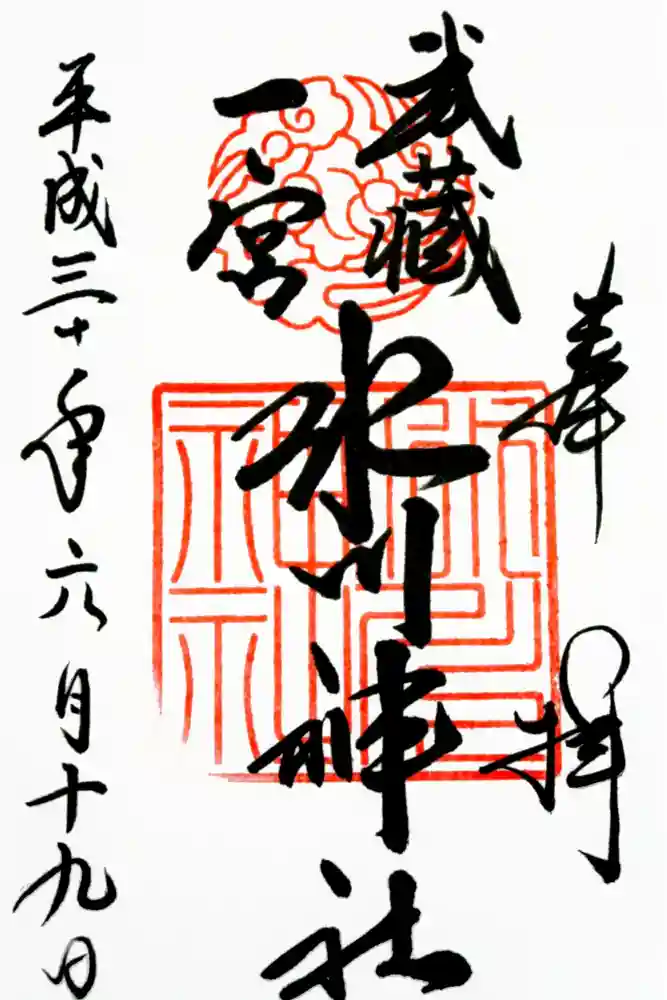 奉拝
武蔵
一宮
氷川神社
平成三十年六月十九日